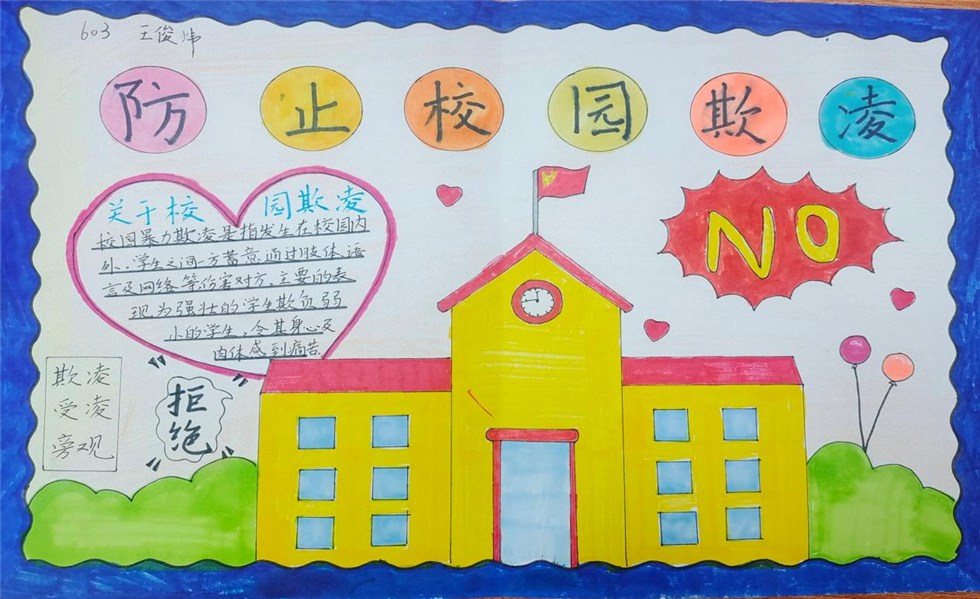 603 王俊炜
防止校园欺凌
关于校园欺凌
校园暴力欺凌是指发生在校园内
外、学生之间一方蓄意通过肢体、语
言及网络等伤害对方。主要的表
现为强壮的学生欺负弱
小的学生,令其身心及
肉体感到痛苦。
NO
欺凌
受凌
旁观
拒
绝